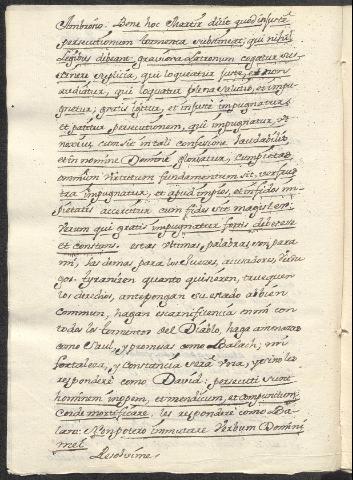 Ambrosio. Bene hoc Martir dicit quod injuste
persecutionum tormenta sustineat; qui nihil
Legibus debeat, graviora latronum cogatur sus-
tinere suplicia, qui loquatur justa, et non
audiatur, qui loquatur plena salutis, et impu-
gnetur; gratis igitur, et injuste impugnatur,
et patitur persecutionem, qui impugnatur
cum sit in tali confessione laudabilis
et in nomine Domini glorietur, cum pietas
communi virtutum fundamentum sit,
tra impugnatur, et apud impios, et infidos im-
pietatis accersitur cum fidei sit magister.
Verum qui gratis impugnatur fortis debet esse
et constans. estas ultimas palabras son para
mi, las demas, para los Jueces, acusadores, verdu-
gos. tyranizen quanto quisieren, truequen
los derechos, antepongan su estado al bien
commun, hagan escarnificencia en mi con
todos los tormentos del Diablo, haga amenazas
como Saul, y promesas como Balach; mi
fortaleza, y constancia será una, y sino les
responderé como David: persecuti sunt
hominem inopem, et mendicum, et compunctum
Corde mortificare, les responderé como Ba-
lam: Non potero immutare Verbum Domini
mei.
Resolvime